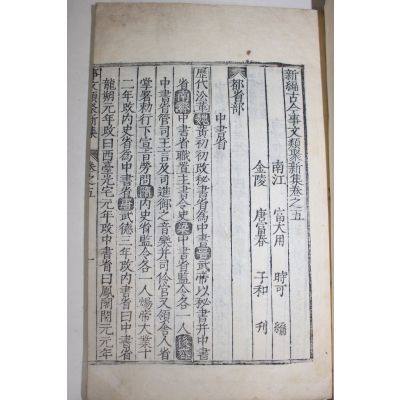 新編古今事文類聚新集卷之五
南江 富大用 時可 編
金陵 唐富春 子和 刊
都省部
中書省
歷代沿革魏黃初初改秘書省為中書晉武帝以秘書并中書
省南齊中書省職置主書令史梁中書省監令各一人後魏
中書省管司王言及司進御之音樂并可伶官又領舍人省
掌署勑行下宣旨勞問隋內史省監令各一人煬帝大業十
二年改內史省為中書省唐武德三年改內書省曰中書省
龍朔元年改曰西臺光宅元年改中書省曰鳳閣開元元年
事文類聚新集 卷之五 一